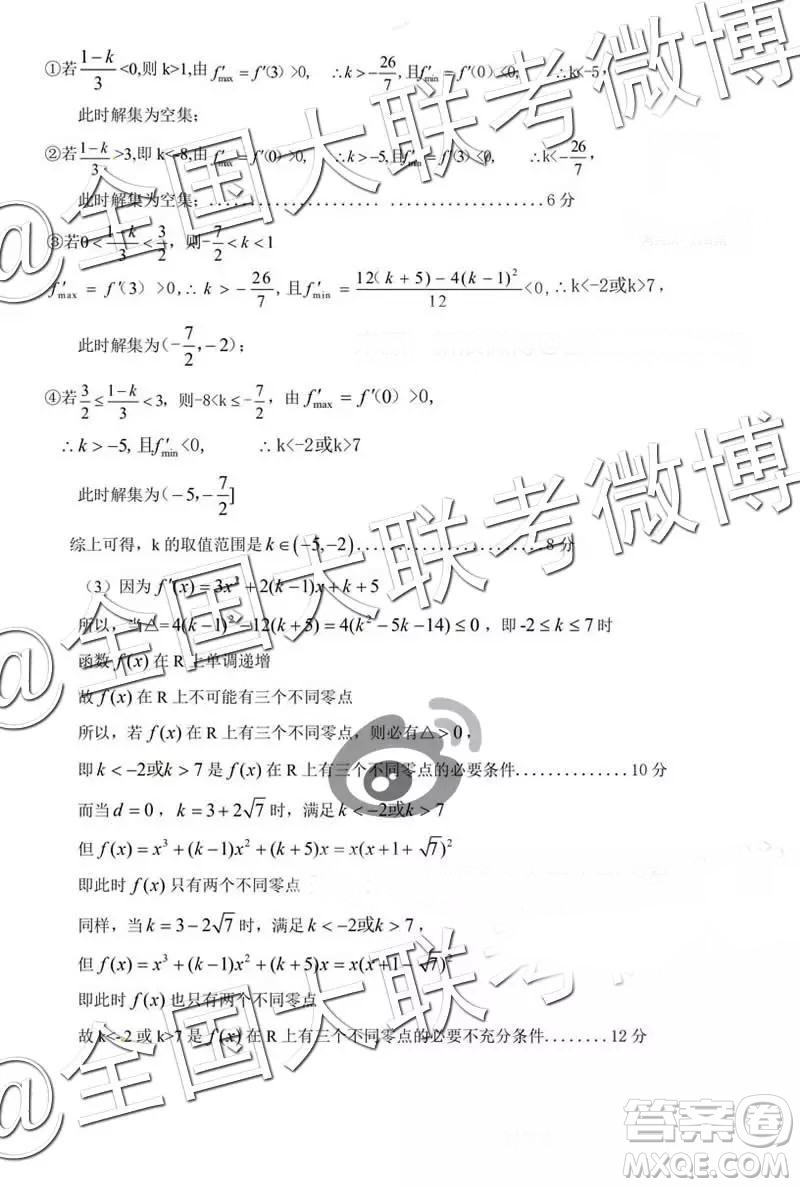 ①若(1-k)/3<0,则 k>1,由 f′max = f′(3) >0, ∴k>-26/7,且f′min = f′(0) <0, ∴k<-5,
此时解集为空集;
②若(1-k)/3>3,即 k<-8,由 f′max = f′(0) >0, ∴k>-5,且f′min = f′(3) <0, ∴k<-26/7,
此时解集为空集;....................6 分
③若0<(1-k)/3<3/2, 则-7/2<k<1
f′max = f′(3) >0,∴k>-26/7,且 f′min = (12(k+5)-4(k-1)²)/12 <0,∴k<-2或k>7,
此时解集为(-7/2,-2);
④若3/2≤(1-k)/3<3, 则-8<k≤-7/2, 由 f′max = f′(0) >0,
∴k>-5,且f′min<0, ∴k<-2或k>7
此时解集为(-5,-7/2]
综上可得, k 的取值范围是k∈(-5,-2)....................8 分
(3)因为 f′(x)=3x²+2(k-1)x+k+5
所以, 当△=4(k-1)²-12(k+5)=4(k²-5k-14)≤0, 即-2≤k≤7时
函数 f(x) 在 R 上单调递增
故 f(x) 在 R 上不可能有三个不同零点
所以, 若 f(x) 在 R 上有三个不同零点, 则必有△>0,
即k<-2或k>7是 f(x) 在 R 上有三个不同零点的必要条件.............10 分
而当d=0, k=3+2√7时, 满足k<-2或k>7
但 f(x)=x³+(k-1)x²+(k+5)x=x(x+1+√7)²
即此时 f(x) 只有两个不同零点
同样, 当k=3-2√7时, 满足k<-2或k>7,
但 f(x)=x³+(k-1)x²+(k+5)x=x(x+1-√7)²
即此时 f(x) 也只有两个不同零点
故 k<-2 或 k>7 是 f(x) 在 R 上有三个不同零点的必要不充分条件........12 分
@全国大联考微博
@全国大联考微博
@全国大联考微博
答案卷
MXQE.COM